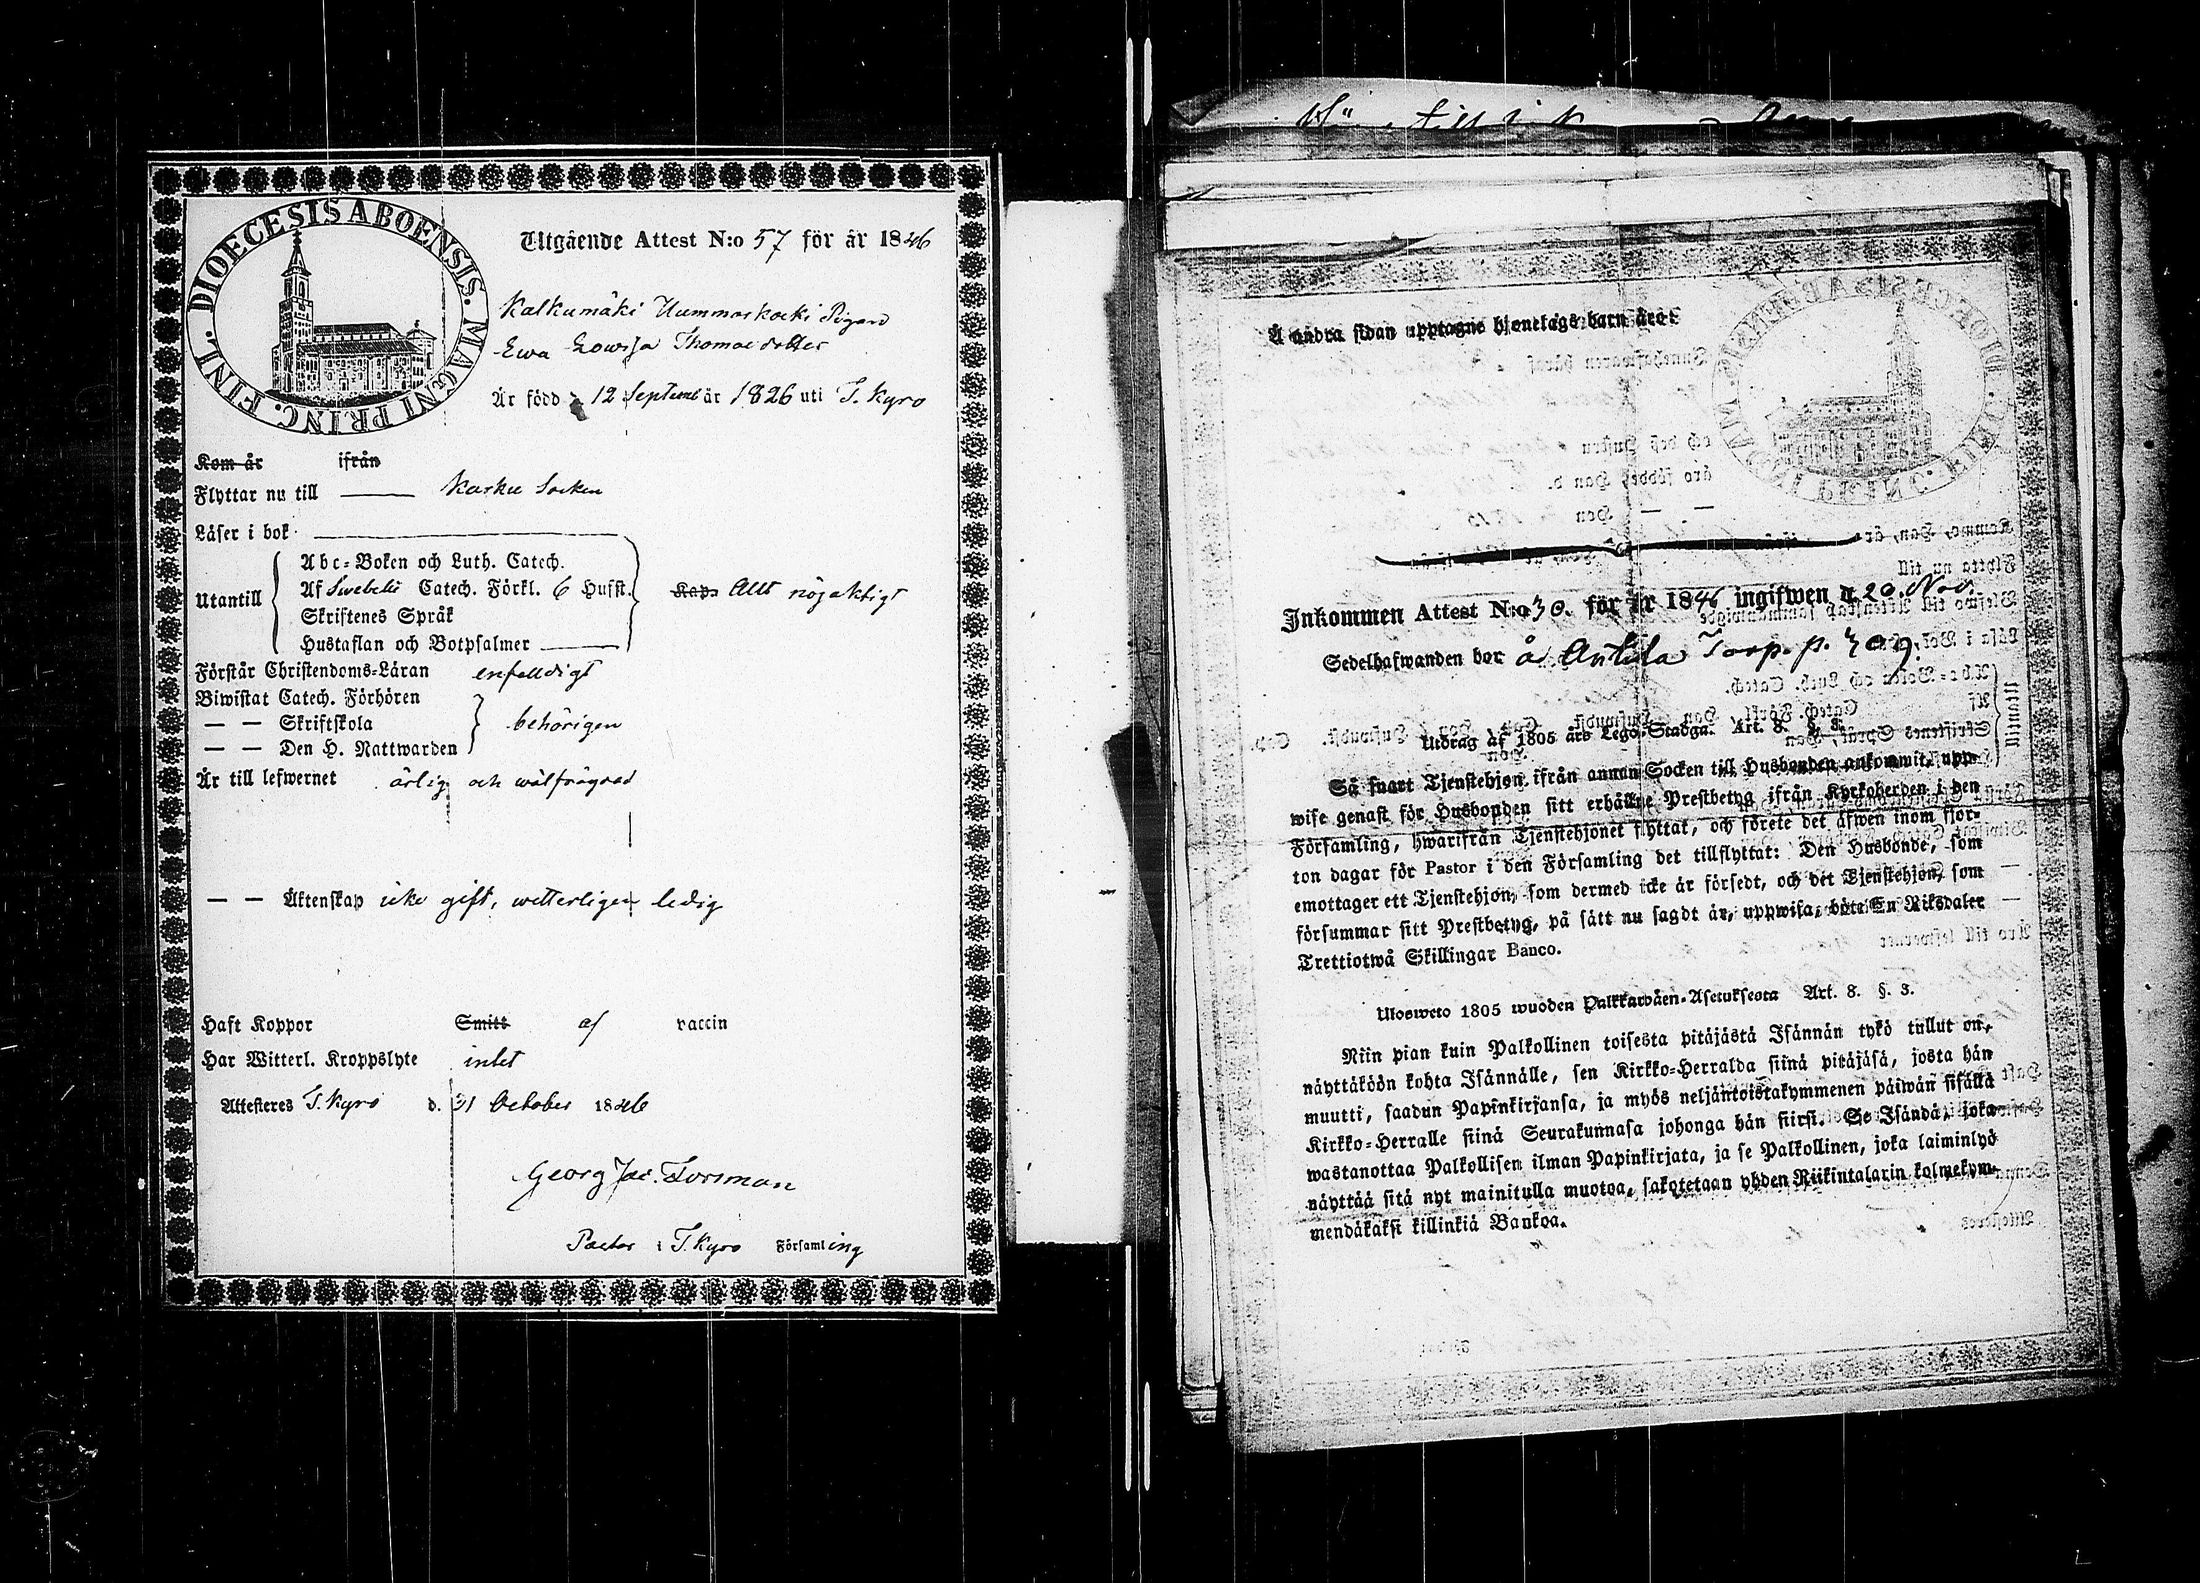 DIOECESIS ABOENSIS. MAGNI PRINC. FINL.
Utgående Attest N:o 57 för år 1846
Kalkumäki Pigan
Ewa Lowisa Thomae dotter
Är född 12 Septemb år 1826 uti T. Kyro
Kom år ifrån
Flyttar nu till Karku Socken
Läser i bok
Utantill
Abc-Boken och Luth. Catech.
Af Swebelii Catech. Förkl. 6 Hufst.
Skriftenes Språk
Hustaflan och Botpsalmer
Kap. Allt nöjaktigt
Förstår Christendoms-Läran enfalldigt
Biwistat Catech. Förhören
— — Skriftskola
— — Den H. Nattwarden
behörigen
Är till lefwernet ärlig och wälfrägdad
— — Äktenskap icke gift, wetterligen ledig
Haft Koppor Smitt af vaccin
Har Witterl. Kroppslyte intet
Attesteres T. Kyro d. 31 October 1846
Georg Jac. Forsman
Pastor i T. Kyro Församling
Å andra sidan upptagne hjonelags barn äro:
Inkommen Attest N:o 30. för år 1846 ingifwen d. 20. Nov.
Sedelhafwanden bor å Anttila Torp. p. 309.
Utdrag af 1805 års Lego-Stadga. Art. 8. §. 3.
Så snart Tjenstehjon ifrån annan Socken till Husbonden ankommit, upp-
wise genast för Husbonden sitt erhållne Prestbetyg ifrån Kyrkoherden i den
Församling, hwarifrån Tjenstehjonet flyttat, och förete det äfwen inom fjor-
ton dagar för Pastor i den Församling det tillflyttat: Den Husbonde, som
emottager ett Tjenstehjon, som dermed icke är försedt, och det Tjenstehjon, som
försummar sitt Prestbetyg, på sätt nu sagdt är, uppwisa, böte En Riksdaler
Trettiotwå Skillingar Banco.
Ulosweto 1805 wuoden Palkkawäen-Asetuksesta Art. 8. §. 3.
Niin pian kuin Palkollinen toisesta pitäjästä Isännän tykö tullut on,
näyttäköön kohta Isännälle, sen Kirkko-Herralda siinä pitäjäsä, josta hän
muutti, saadun Papinkirjansa, ja myös neljäntoistakymmenen päiwän sisällä
Kirkko-Herralle siinä Seurakunnasa johonga hän siirsi. Se Isändä, joka
wastanottaa Palkollisen ilman Papinkirjata, ja se Palkollinen, joka laiminlyö
näyttää sitä nyt mainitulla muotoa, sakotetaan yhden Riikintalarin kolmekym-
mendäkaksi killinkiä Bankoa.